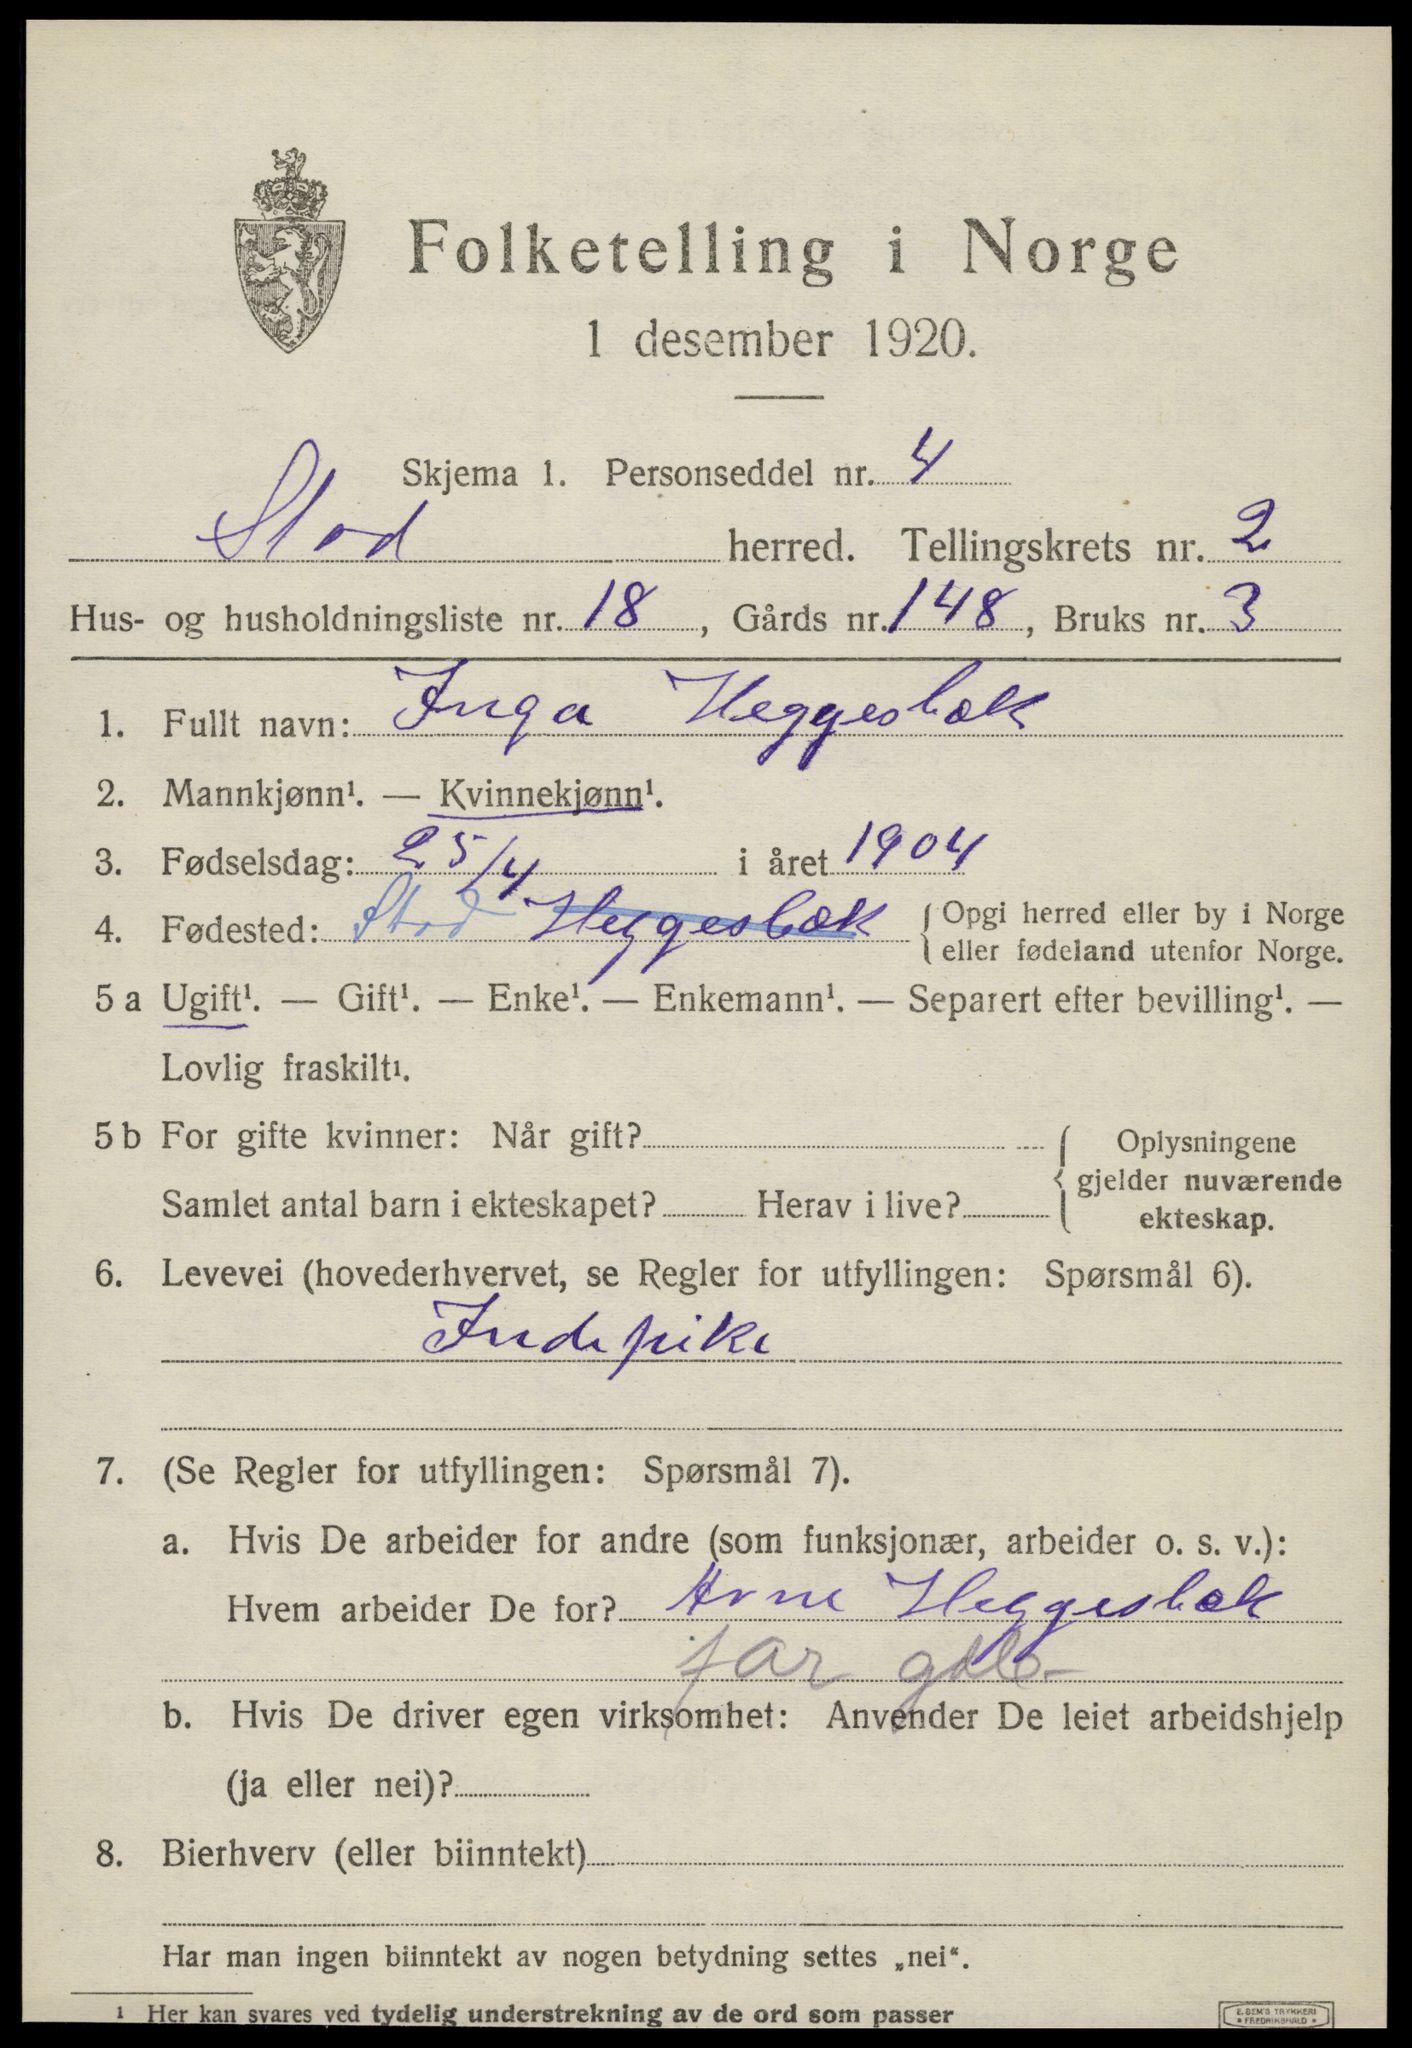 Folketelling i Norge
1 desember 1920.
Skjema 1. Personseddel nr. 4
Stod herred. Tellingskrets nr. 2
Hus- og husholdningsliste nr. 18, Gårds nr. 148, Bruks nr. 3
1. Fullt navn: Inga Heggesbæk
2. Mannkjønn¹. — Kvinnekjønn¹.
3. Fødselsdag: 25/4 i året 1904
4. Fødested: Stod Heggesbæk { Opgi herred eller by i Norge
eller fødeland utenfor Norge.
5 a Ugift¹. — Gift¹. — Enke¹. — Enkemann¹. — Separert efter bevilling¹. —
Lovlig fraskilt¹.
5 b For gifte kvinner: Når gift? { Oplysningene
gjelder nuværende
ekteskap.
Samlet antal barn i ekteskapet? Herav i live?
6. Levevei (hovederhvervet, se Regler for utfyllingen: Spørsmål 6).
Indepike
7. (Se Regler for utfyllingen: Spørsmål 7).
a. Hvis De arbeider for andre (som funksjonær, arbeider o. s. v.):
Hvem arbeider De for? Arne Heggesbæk
far gbr
b. Hvis De driver egen virksomhet: Anvender De leiet arbeidshjelp
(ja eller nei)?
8. Bierhverv (eller biinntekt)
Har man ingen biinntekt av nogen betydning settes „nei“.
¹ Her kan svares ved tydelig understrekning av de ord som passer
E. SEM'S TRYKKERI
* FREDRIKSHALD *